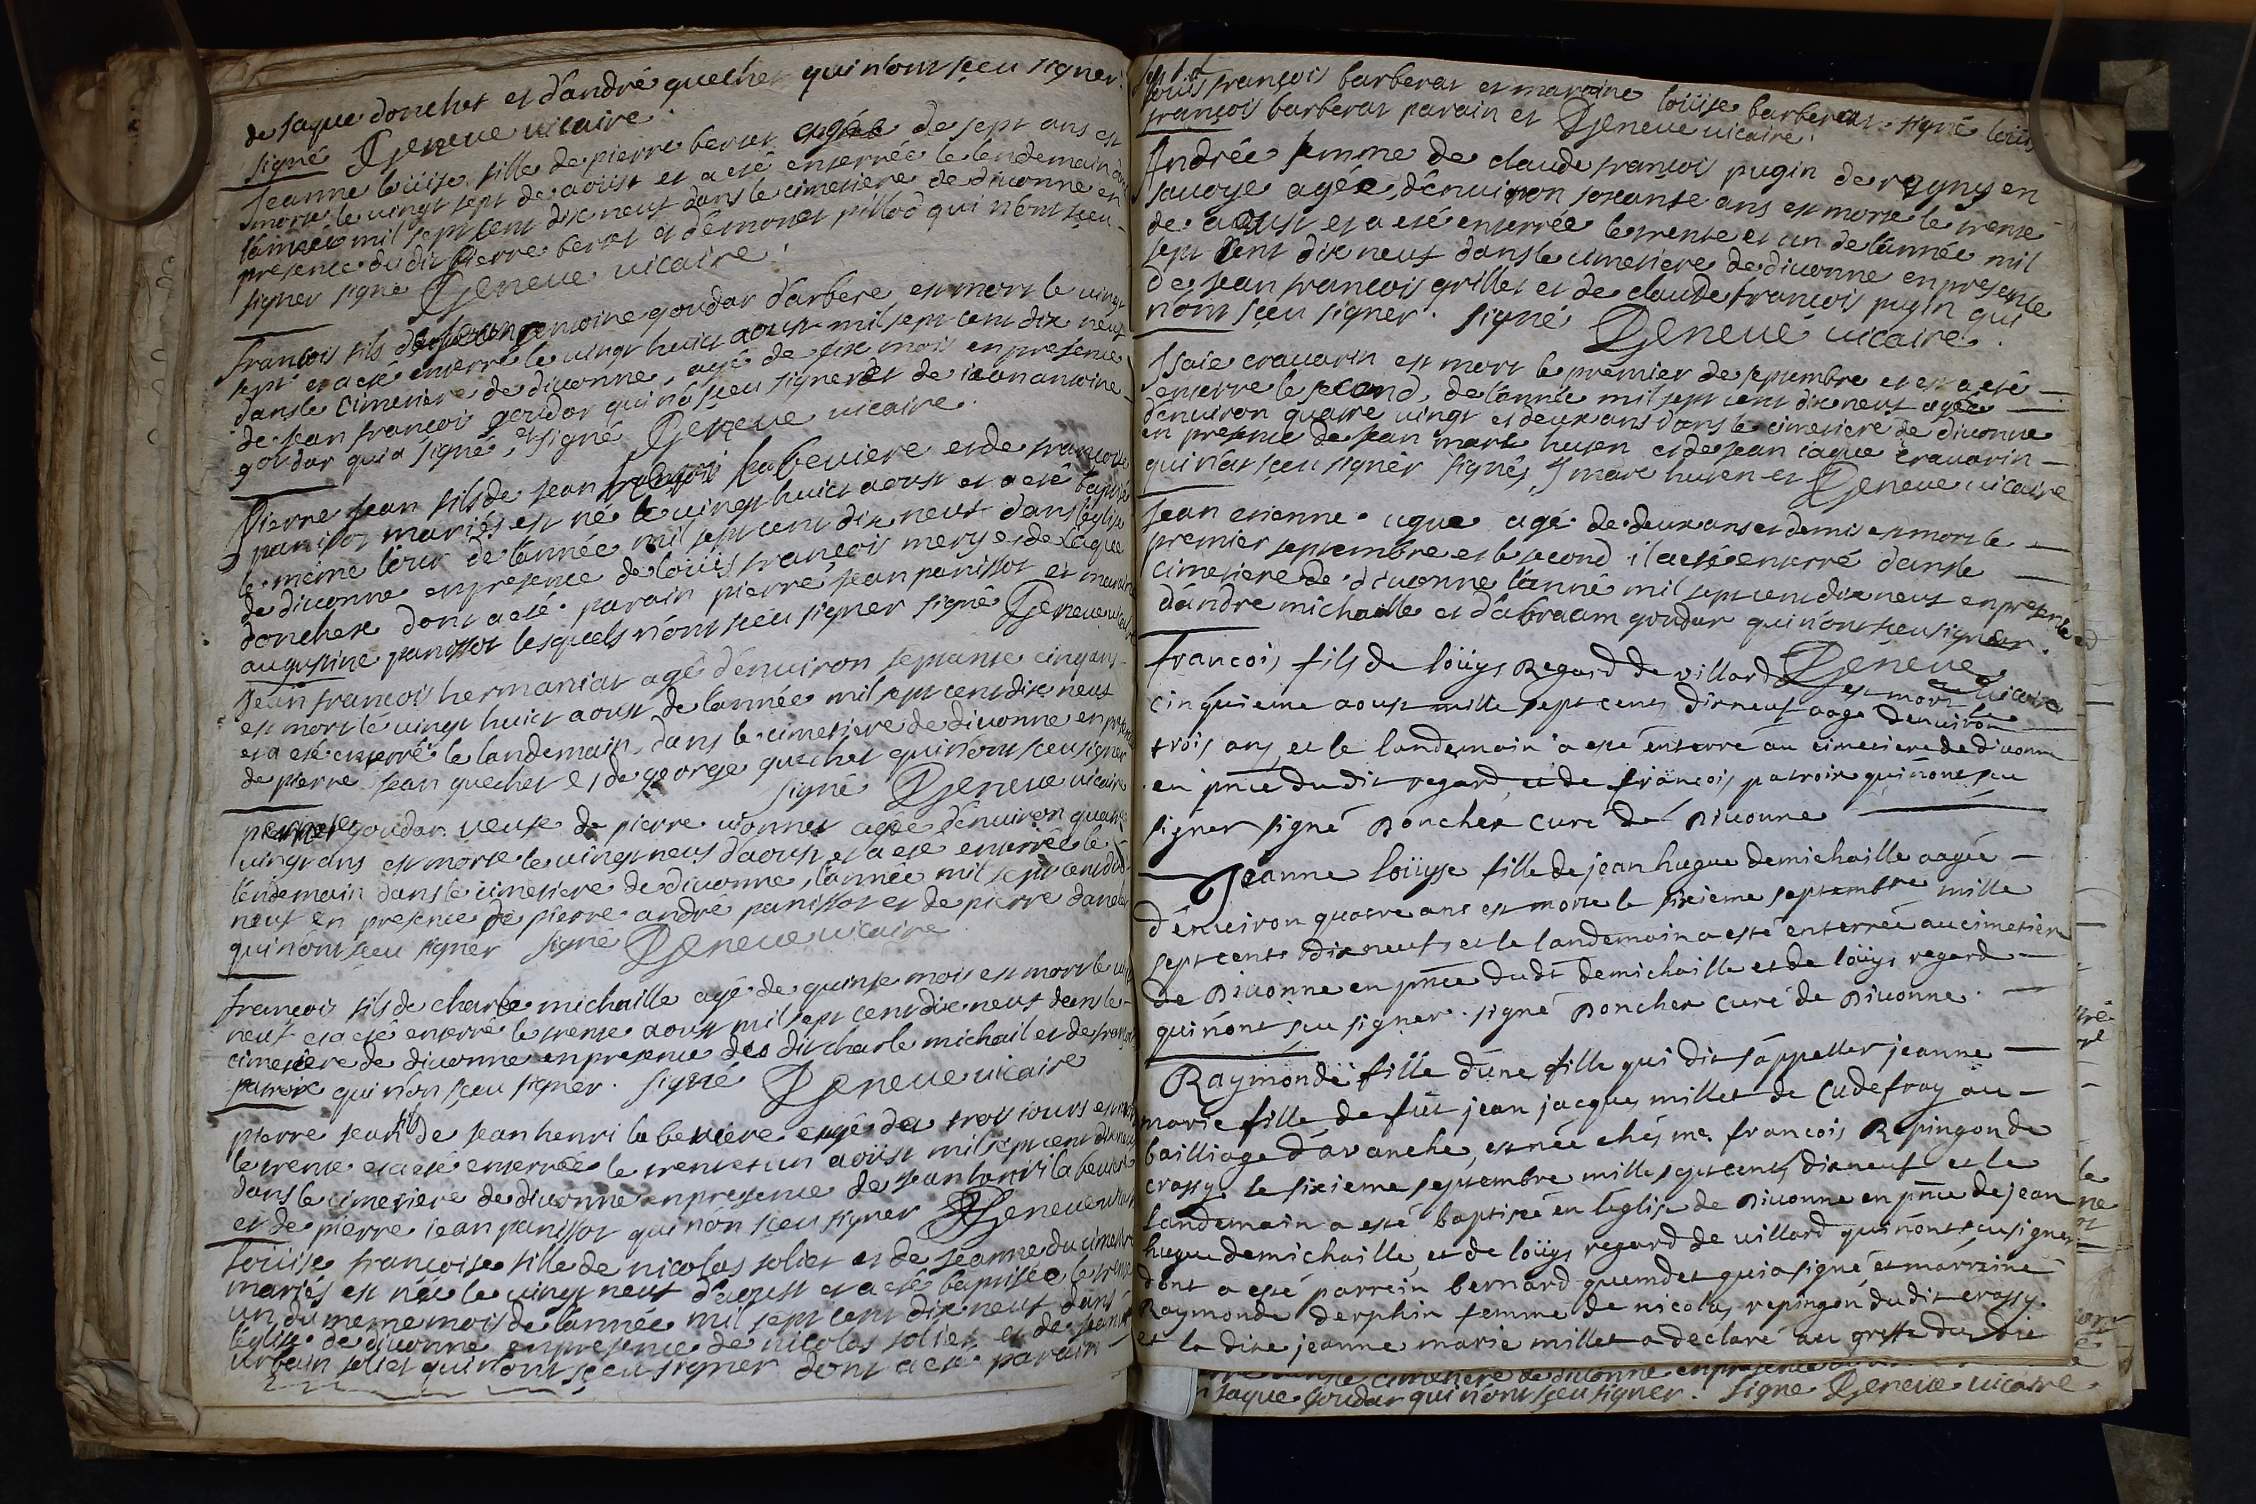 de Jaque donchet et d'andré quechet qui n'ont sçeu signer.
signé Geneve vicaire.
Jeanne loüise fille de pierre beret agée de sept ans est
morte le vingt sept de aoust et a eté enterrée le lendemain de
l'année mil sept cent dix neuf dans le cimetiere de divonne en
presence dudit pierre beret et démonet pillod qui n'ont sçeu
signer signé Geneve vicaire.
françois fils de antoine goudar d'arbere est mort le vingt
sept et a eté enterré le vingt huict aoust mil sept cent dix neuf
dans le cimetiere de divonne, agé de six mois en presence
de Jean françois goudar qui n'a sçeu signer et de iean antoine
goudar qui a signé, et signé Geneve vicaire.
Pierre Jean fils de Jean françois labeviere et de françoise
panissot mariés est né le vingt huict aoust et a eté baptisé
le même iour de l'année mil sept cent dix neuf dans l'eglise
de divonne en presence de loüis françois mery et de Jaque
donchet dont a eté parain pierre Jean panissot et maraine
augustine panissot lesquels n'ont sçeu signer signé Geneve
Jean françois hermaniat agé d'environ septante cinq ans
est mort le vingt huict aoust de l'année mil sept cent dix neuf
et a eté enterré le landemain dans le cimetiere de divonne en presence
de pierre Jean quechet et de george quechet qui n'ont sceu signer
signé Geneve vicaire
goudar veuve de pierre vionnet agée d'environ quatre
vingt ans est morte le vingt neuf d'aoust et a eté enterrée le
lendemain dans le cimetiere de divonne, l'année mil sept cent dix
neuf en presence de pierre andré panissot et de pierre danel
qui n'ont sceu signer signé Geneve vicaire
françois fils de charle michaille agé de quinse mois est mort le vingt
neuf et a eté enterré le trente aoust mil sept cent dix neuf dans le
cimetiere de divonne en presence des dit charle michail et de françois
patroix qui n'on sçeu signer. signé Geneve vicaire
pierre Jean fils de Jean henri la beviere agé de trois iours est mort
le trente et a eté enterrée le trente et un aoüst mil sept cent dix neuf
dans le cimetiere de divonne en presence de Jean henri la beviere
et de pierre iean panissot qui n'on sceu signer Geneve
loüise françoise fille de nicolas soliet et de Jeanne ducimetiere
mariés est née le vingt neuf d'aoust et a eté baptisée le trente
un du meme mois de l'année mil sept cent dix neuf dans
l'eglise de divonne en presence de nicolas soliet et de Jean
urbain soliet qui n'ont sçeu signer dont a eté parain
loüis françois barberat et maraine loüise barberat. signé loüis
françois barberat parain et Geneve vicaire.
Andrée femme de claude françois pugin de regny en
savoye agée d'environ soixante ans est morte le trente
de aoust et a eté enterrée le trente et un de l'année mil
sept cent dix neuf dans le cimetiere de divonne en presence
de Jean francois grillet et de claude francois pugin qui
n'ont sçeu signer. signé Geneve vicaire.
Isaie cravarin est mort le premier de septembre et est a eté
enterre le second, de l'année mil sept cent dix neuf agée
d'environ quatre vingt et deux ans dans le cimetiere de divonne
en presence de Jean marc huten et de Jean iaque cravarin
qui n'at sçeu signer signés J marc huten et Geneve vicaire
Jean etienne ague agé de deux ans et demis est mort le
premier septembre et le second il a eté enterré dans le
cimetiere de divonne l'anné mil sept cent dix neuf en presence
d'andre michaille et d'abraam goudar qui n'ont sceu signer.
Geneve vicaire
françois fils de loüys Regard de villard est mort le
cinquieme aoust mille sept cents dixneuf aagé d'environ
trois ans, et le landemain a esté enterré au cimetiere de divonne
en pnce dudit regard, et de françois patroix qui n'ont sçu
signer signé Donchet curé de Divonne
Jeanne loüyse fille de jean hugue demichaille aagée
d'environ quatre ans est morte le sixieme septembre mille
sept cents dix neuf, et le landemain a esté enterrée au cimetiere
de Divonne en pnce dudt demichaille et de loüys regard
qui n'ont sçu signer. signé Donchet curé de Divonne.
Raymonde fille d'une fille qui dit s'appeller jeanne
marie fille de fût jean jacques millet de Cudefray au
bailliage d'avanche, est née chés me. francois Repingon de
crassy. le sixieme septembre mille sept cents dixneuf et le
landemain a esté baptisée en l'eglise de Divonne en pnce de jean
hugue demichaille, et de loüys regard de villard qui n'ont sçu signer
dont a esté parrein bernard quemdet qui a signé et marraine
Raymonde derphin femme de nicolas repingon dudit crassy.
et la dite jeanne marie millet a declaré au greffe du dit
cimetiere de divonne en presence
Jaque Goudar qui n'ont sçeu signer. signe Geneve vicaire.